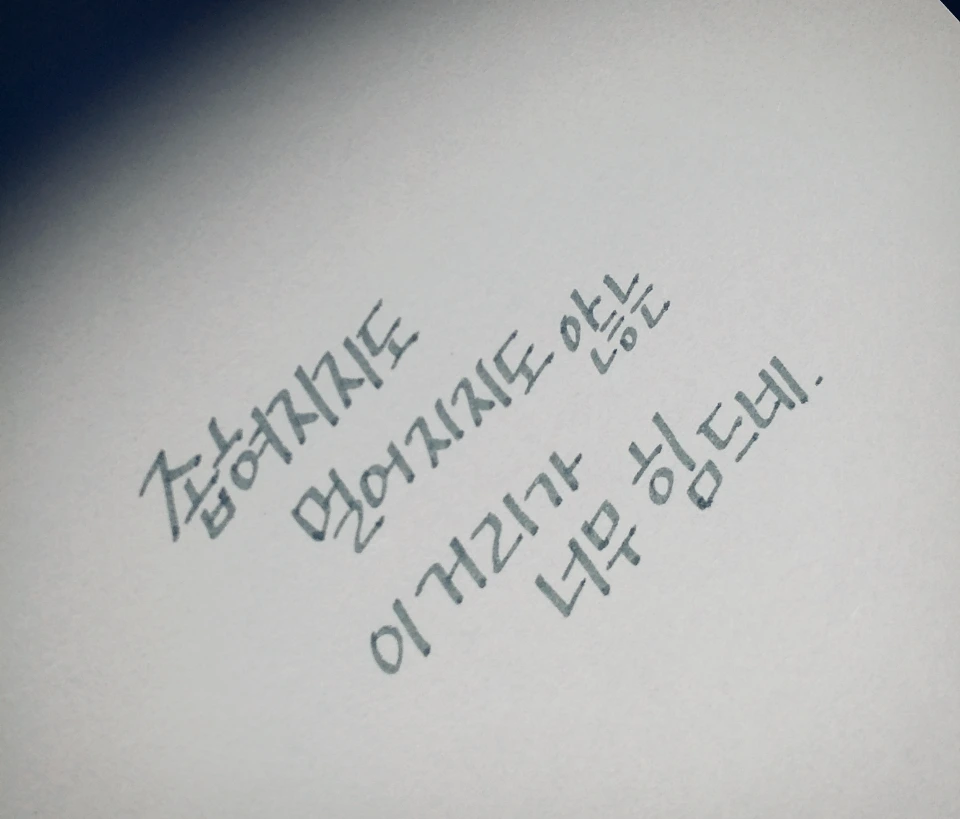 좁혀지지도
멀어지지도 않는
이 거리가
너무 힘드네.